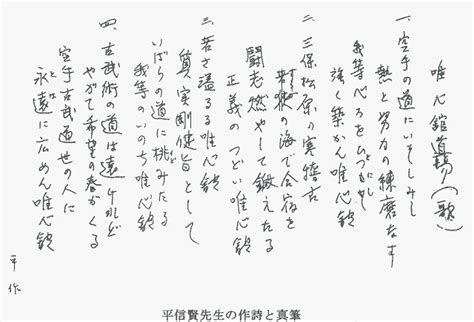 唯心館道場(歌)
一、空手の道にいそしみし
熱と努力の練磨なす
我等ぺろをひつにし
強く築かん唯心舘
二、三保松原の実稽古
の海で合宿を
闘志燃やして鍛えたる
正義のつどい唯心舘
三、若さ溢るる唯心舘
質実剛健旨として
いばらの道に挑みたる
我等のいのち唯心舘
四、古武術の道は遠けれど
やがて希望の春がくる
空手古武道世の人に
永遠に広めん唯心舘
平作
平信賢先生の作詩と真筆